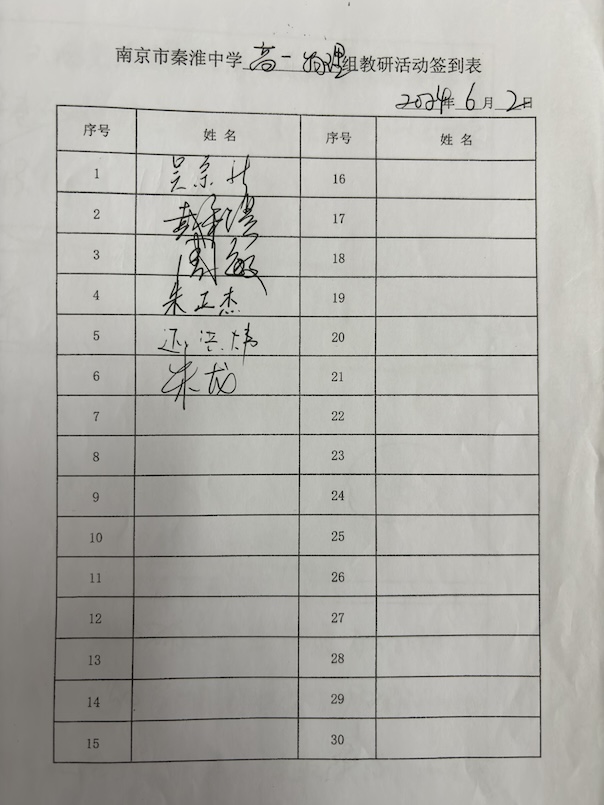 南京市秦淮中学高一物理组教研活动签到表
2024年6月2日
序号 姓名 序号 姓名
1 吴 16
2 17
3 周敏 18
4 朱正杰 19
5 洪炜 20
6 朱龙 21
7 22
8 23
9 24
10 25
11 26
12 27
13 28
14 29
15 30